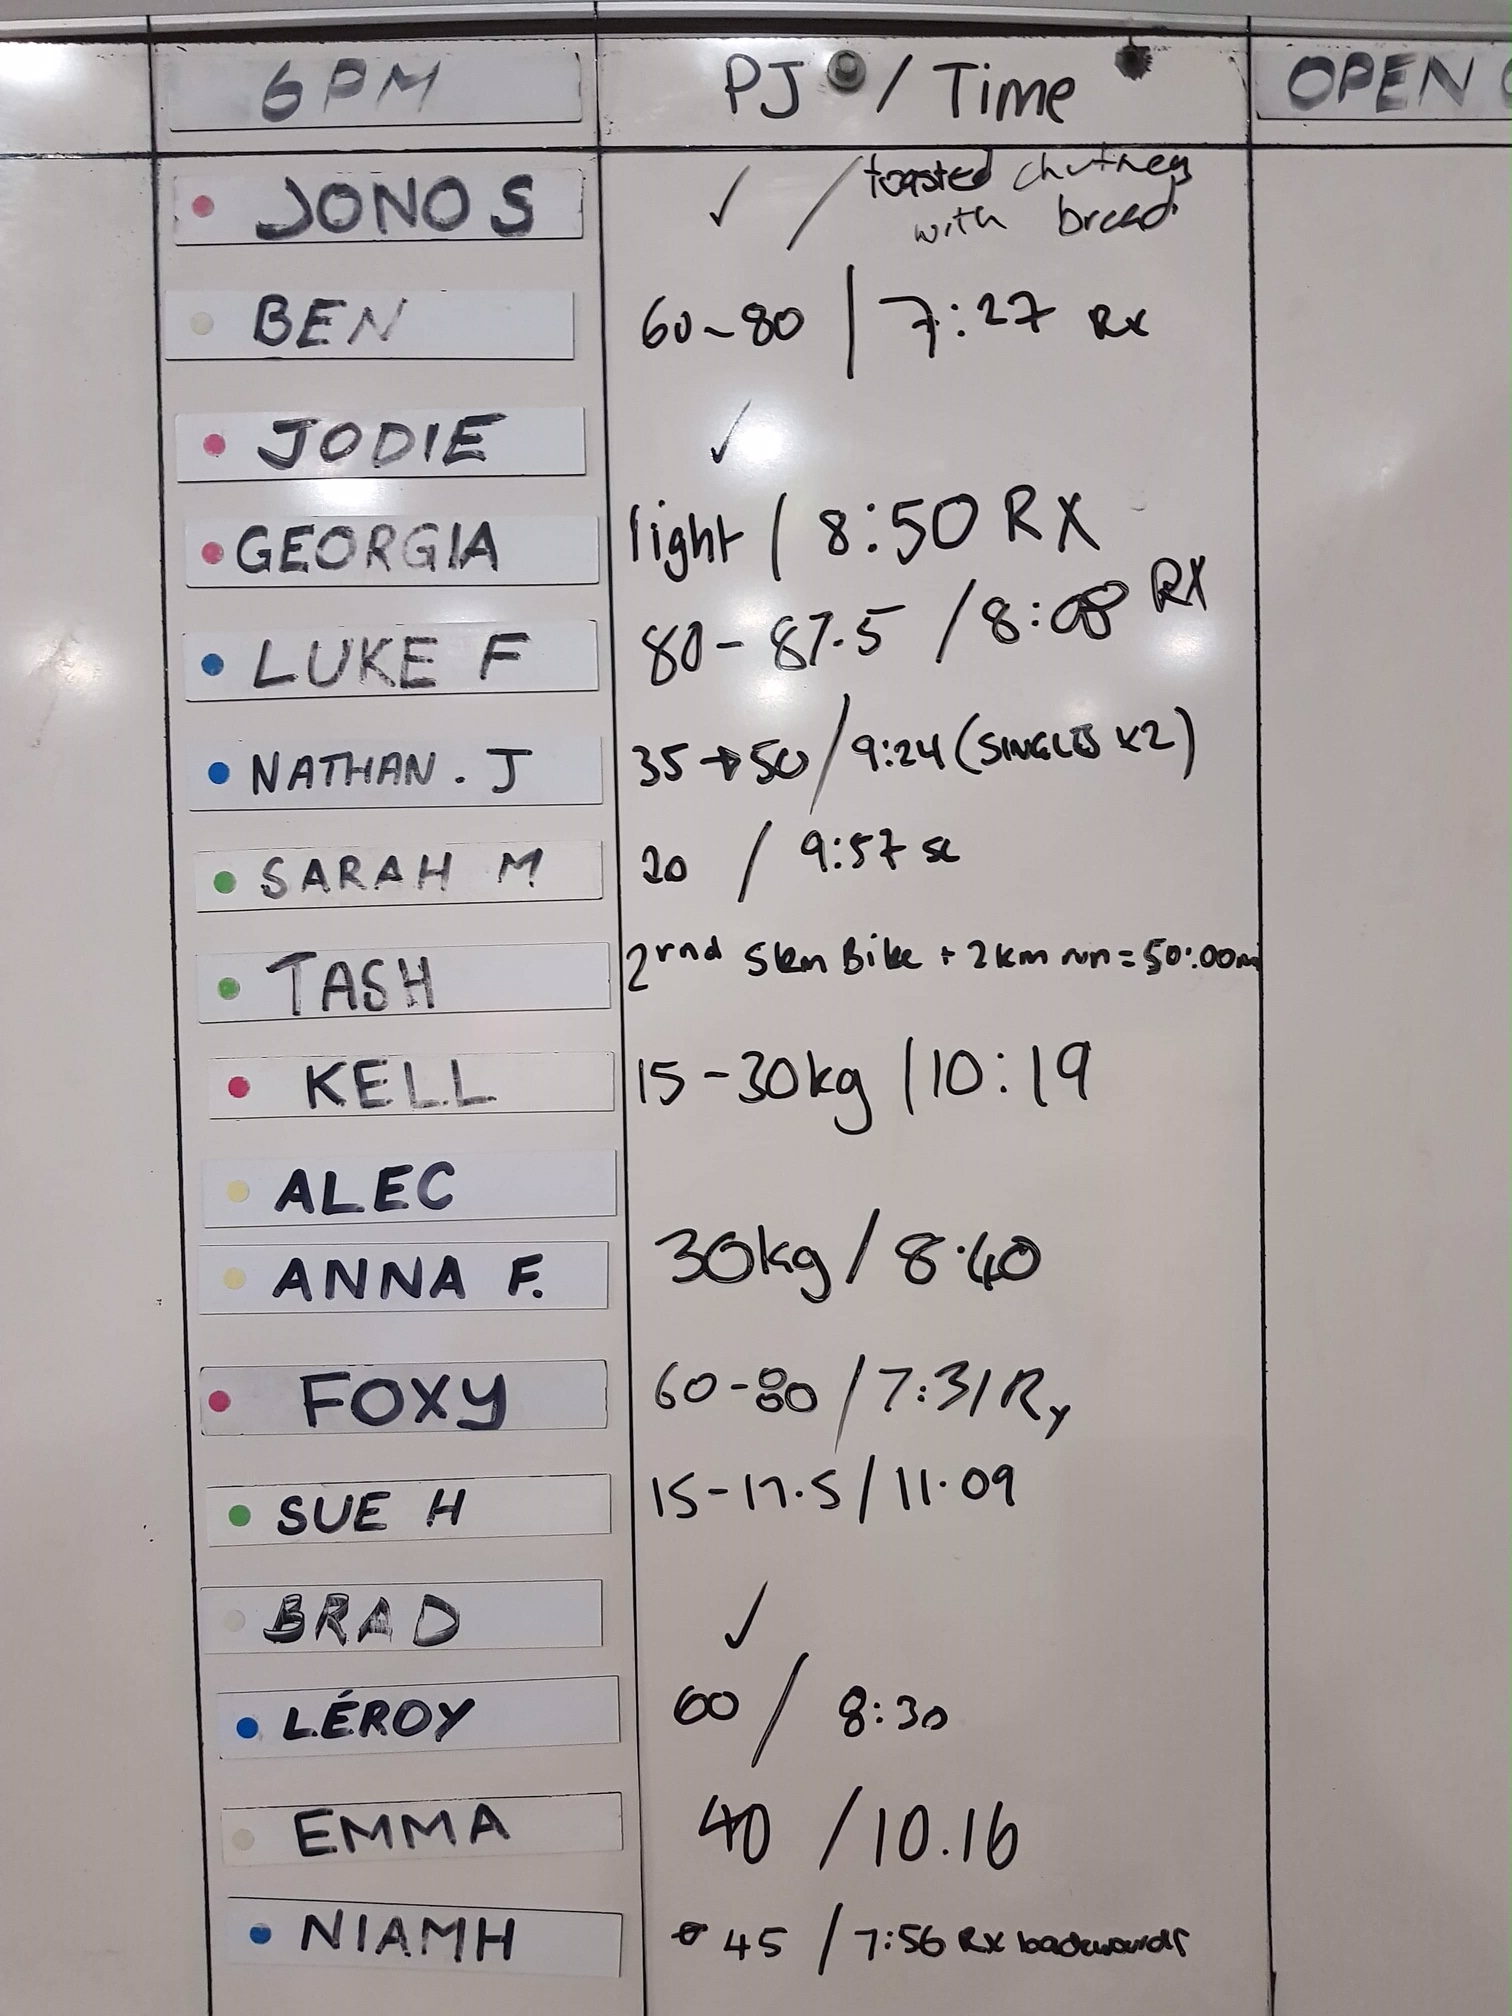 6PM PJ / Time OPEN
JONO S ✓ / toasted chutney
with bread
BEN 60-80 / 7:27 Rx
JODIE ✓
GEORGIA light / 8:50 RX
LUKE F 80-87.5 / 8:08 RX
NATHAN.J 35→50 / 9:24 (SINGLES X2)
SARAH M 20 / 9:57 sc
TASH 2rnd 5km Bike + 2km run = 50:00m
KELL 15-30kg / 10:19
ALEC
ANNA F. 30kg / 8:40
FOXY 60-80 / 7:31 Rx
SUE H 15-17.5 / 11.09
BRAD ✓
LÉROY 60 / 8:30
EMMA 40 / 10.16
NIAMH 45 / 7:56 Rx backwards